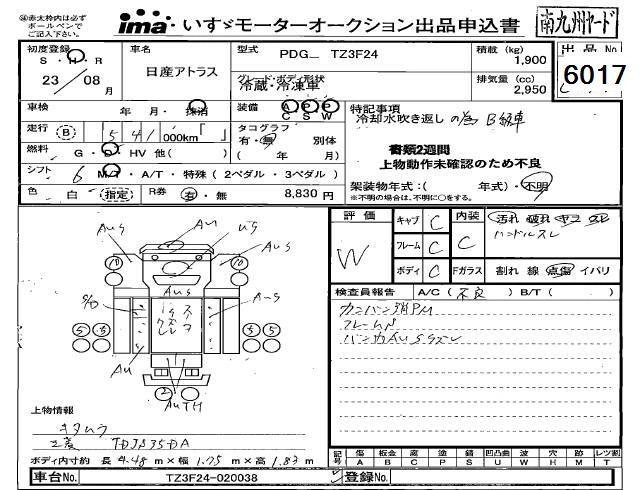 ㊟赤太枠内は必ず
ボールペンで
ご記入下さい。
ima いすゞモーターオークション出品申込書
南九州ヤード
初度登録
S・H・R
23 / 08 月
車名
日産アトラス
型式 PDG_ TZ3F24
グレード・ボディ形状
冷蔵・冷凍車
積載 (kg) 1,900
排気量 (cc) 2,950
出品 No
6017
車検 年 月・抹消
装備 A P P
C S W
走行 B 541 000km「 」
タコグラフ
有・無 別体
( 年 月)
燃料 G・D・HV 他( )
シフト 6 M/T・A/T・特殊(2ペダル・3ペダル)
色 白 指定 R券 有・無 8,830 円
特記事項
冷却水吹き返しの為 B級車
書類2週間
上物動作未確認のため不良
架装物年式:( 年式)・不明
※不明の場合は、不明に○をする。
評価 W
キャブ C
フレーム C
ボディ C
内装 C
Fガラス
汚れ 破れ ヤニ スレ
ハンドルスレ
割れ 線 点傷 イバリ
検査員報告 A/C(不良) B/T( )
カンバン消PM
AU
US
AU S
AU S
A-S
AU
AUTH
上物情報
キタムラ
三菱 TDJS35DA
ボディ内寸約 長 4.48 m×幅 1.75 m×高 1.83 m
記号 傷 A 板金 B 腐 C 塗 P 錆 S 凹凸曲 U 波 W 穴 H 跡 M レツ割 T
車台No. TZ3F24-020038
登録No.